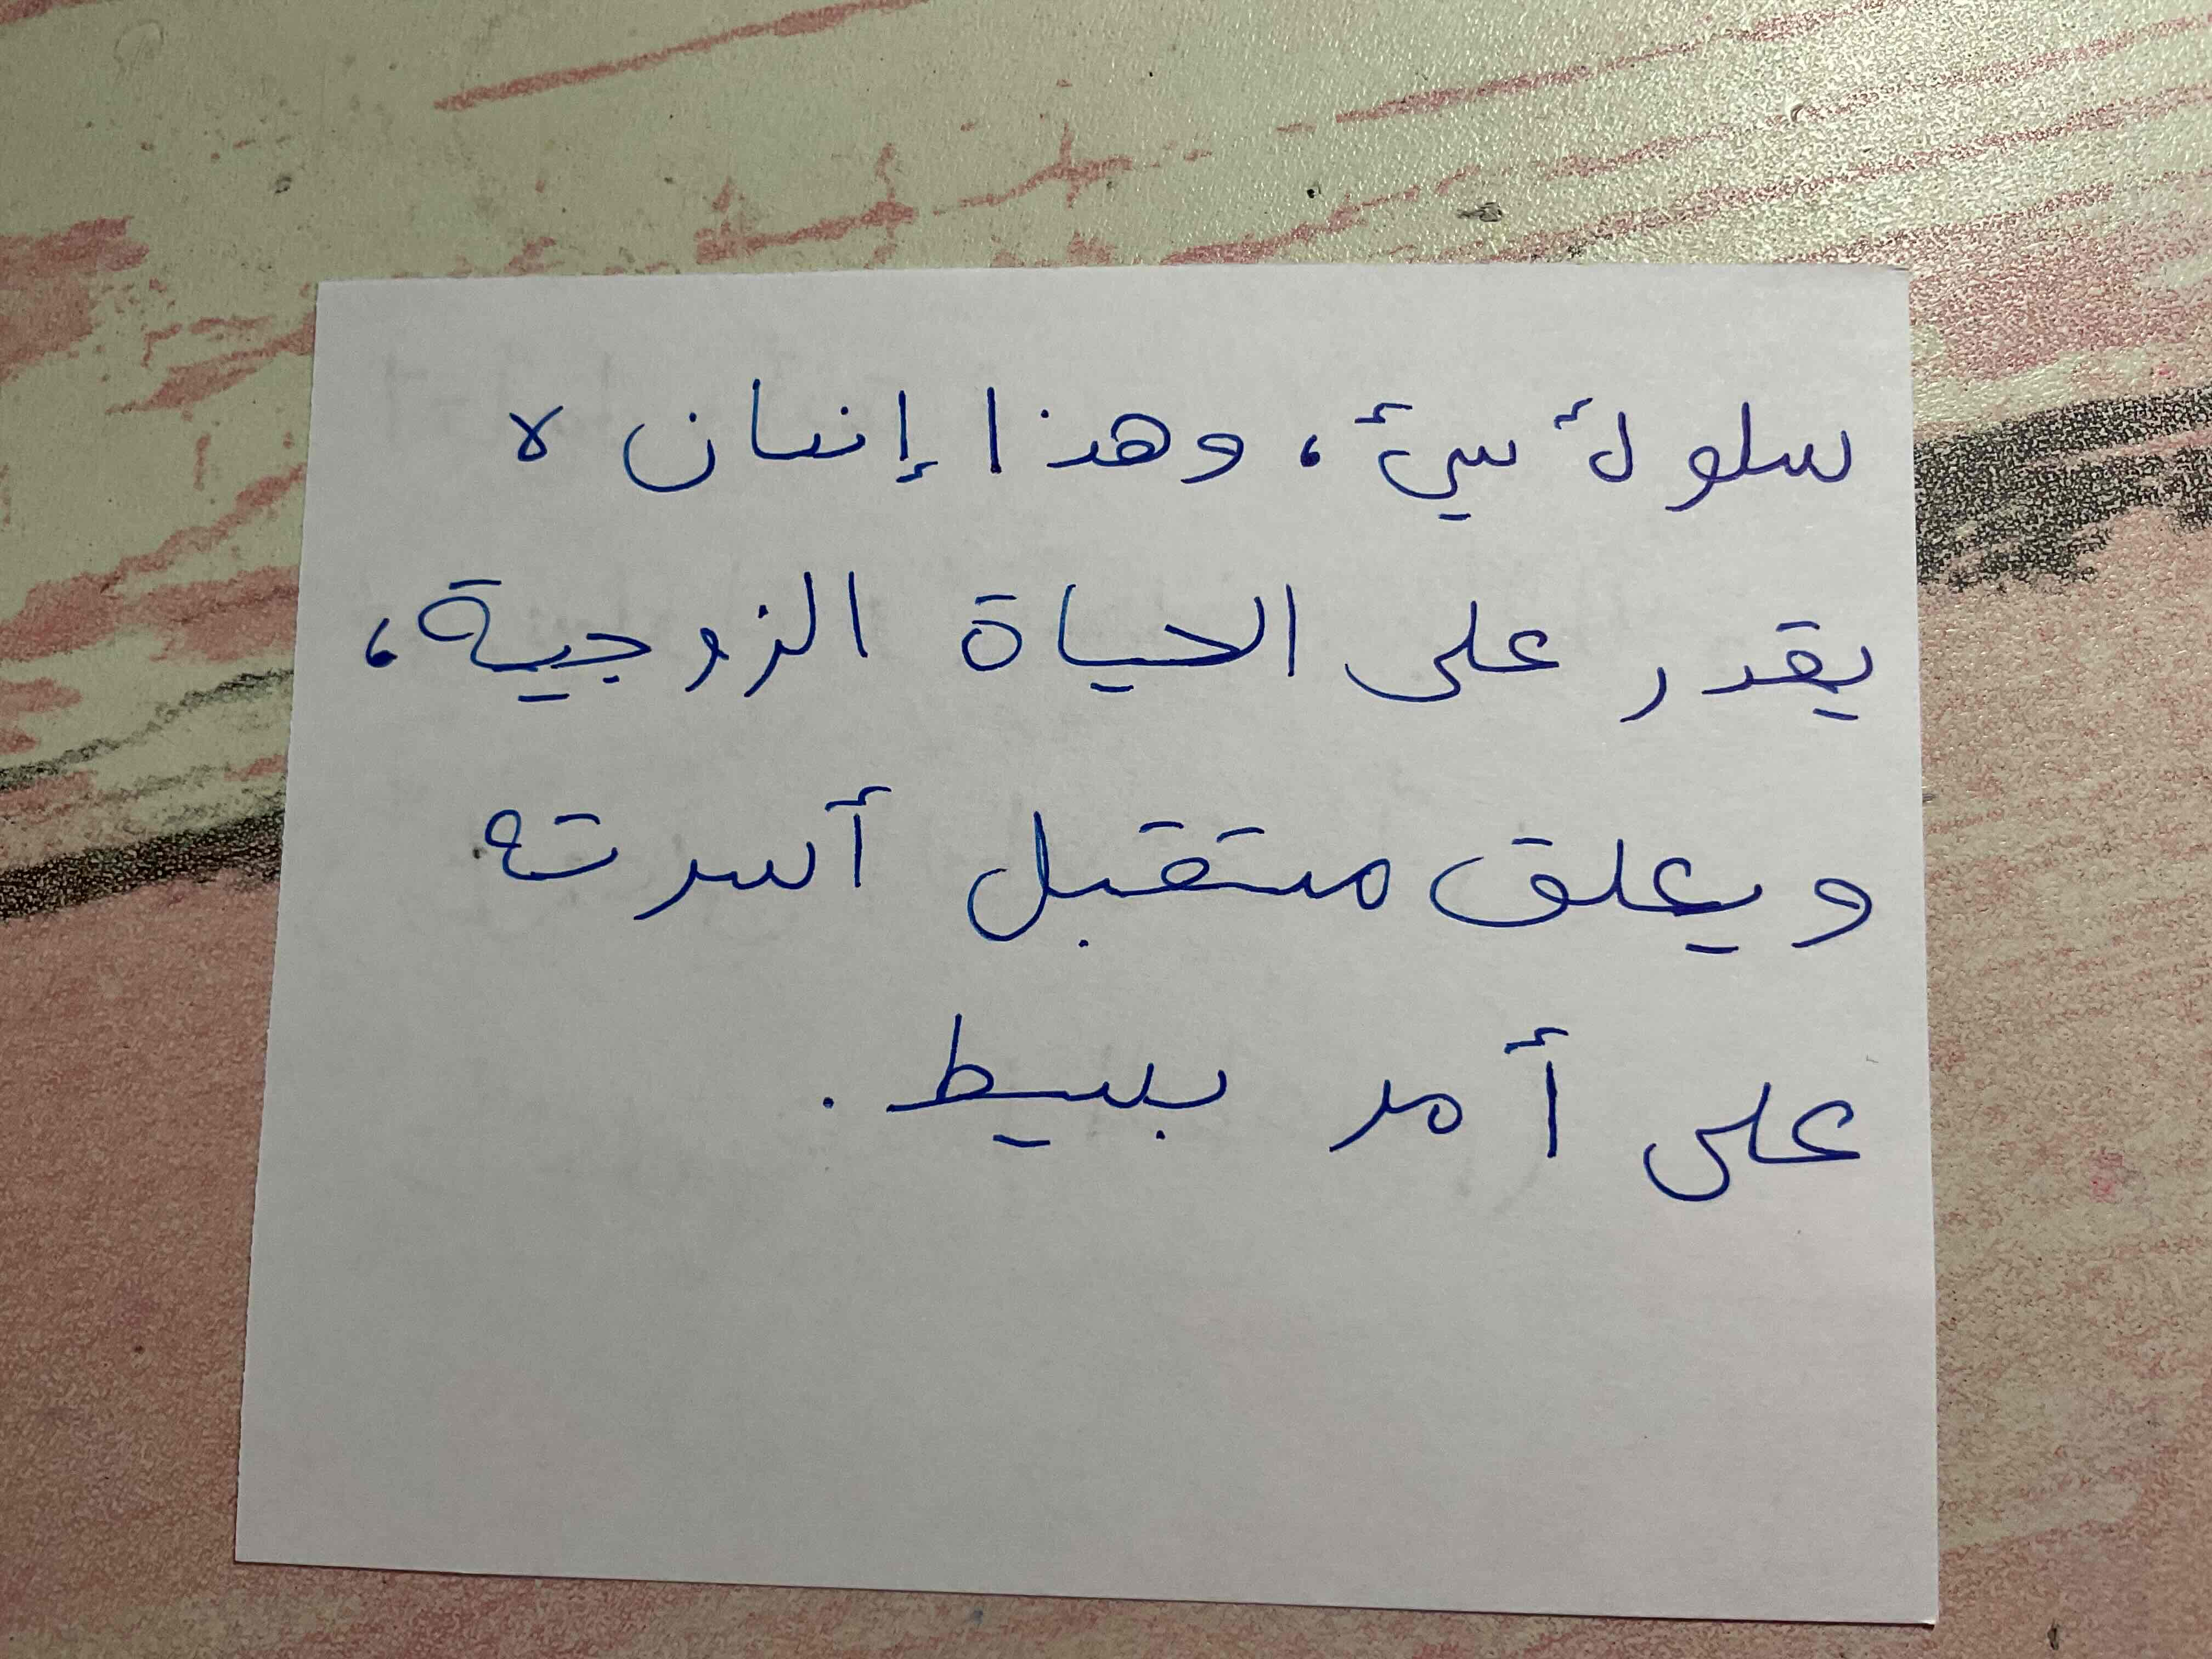 سلوك سيئ، وهذا إنسان لا
يقدر على الحياة الزوجية،
ويعلق مستقبل أسرته
على أمر بسيط.